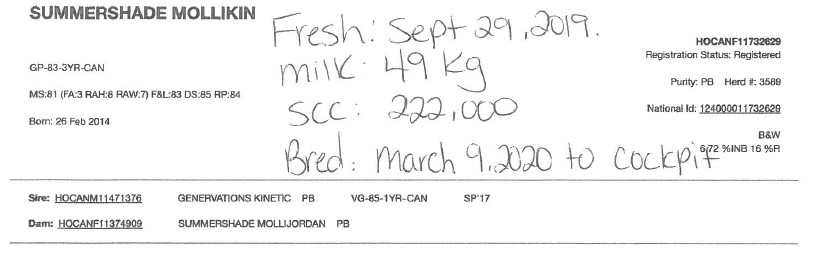 SUMMERSHADE MOLLIKIN
Fresh: Sept 29, 2019.
HOCANF11732629
Registration Status: Registered
GP-83-3YR-CAN
milk: 49 kg
Purity: PB Herd #: 3589
MS:81 (FA:3 RAH:8 RAW:7) F&L:83 DS:85 RP:84
SCC: 222,000
National Id: 124000011732629
Born: 26 Feb 2014
B&W
Bred: March 9, 2020 to cockpit
6.72 %INB 16 %R
Sire: HOCANM11471376 GENERVATIONS KINETIC PB VG-85-1YR-CAN SP'17
Dam: HOCANF11374909 SUMMERSHADE MOLLIJORDAN PB